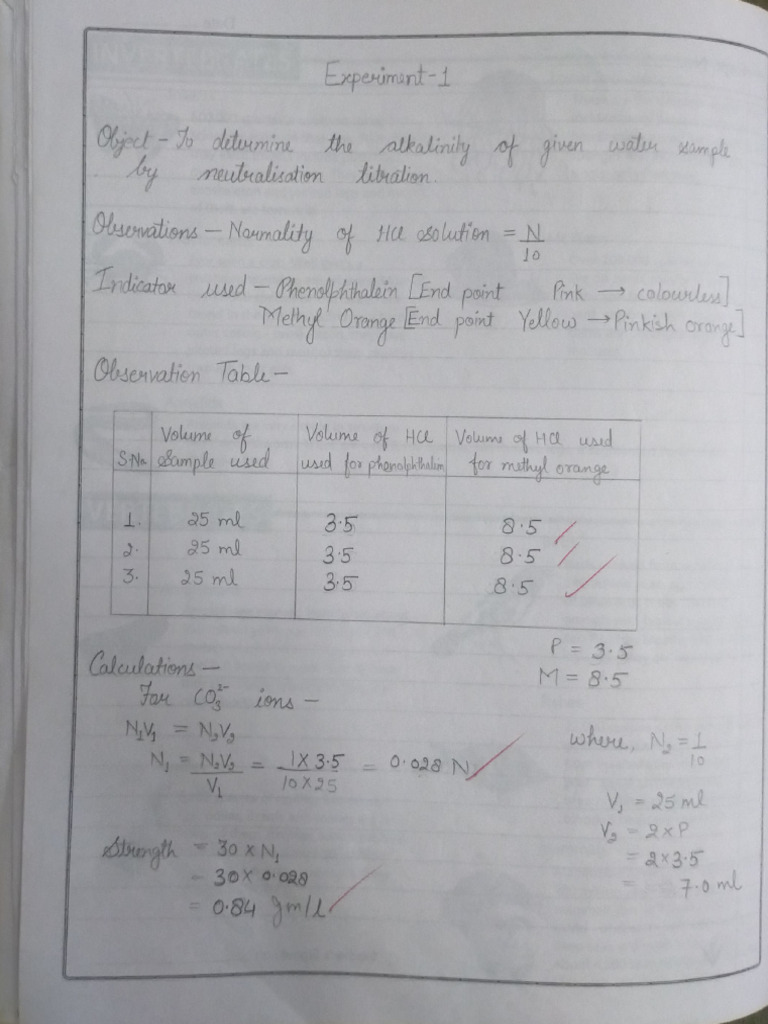 Experiment-1
Object - To determine the alkalinity of given water sample
by neutralisation titration.
Observations - Normality of HCl solution = N/10
Indicator used - Phenolphthalein [End point Pink → colourless]
Methyl Orange [End point Yellow → Pinkish orange]
Observation Table -
S.No. | Volume of sample used | Volume of HCl used for phenolphthalin | Volume of HCl used for methyl orange
1. 25 ml 3.5 8.5
2. 25 ml 3.5 8.5
3. 25 ml 3.5 8.5
P = 3.5
M = 8.5
Calculations -
For CO₃²⁻ ions -
N₁V₁ = N₂V₂
N₁ = N₂V₂/V₁ = 1 X 3.5/10 X 25 = 0.028 N
where, N₂ = 1/10
V₁ = 25 ml
V₂ = 2 x P
= 2 x 3.5
= 7.0 ml
Strength = 30 x N₁
= 30 x 0.028
= 0.84 gm/l